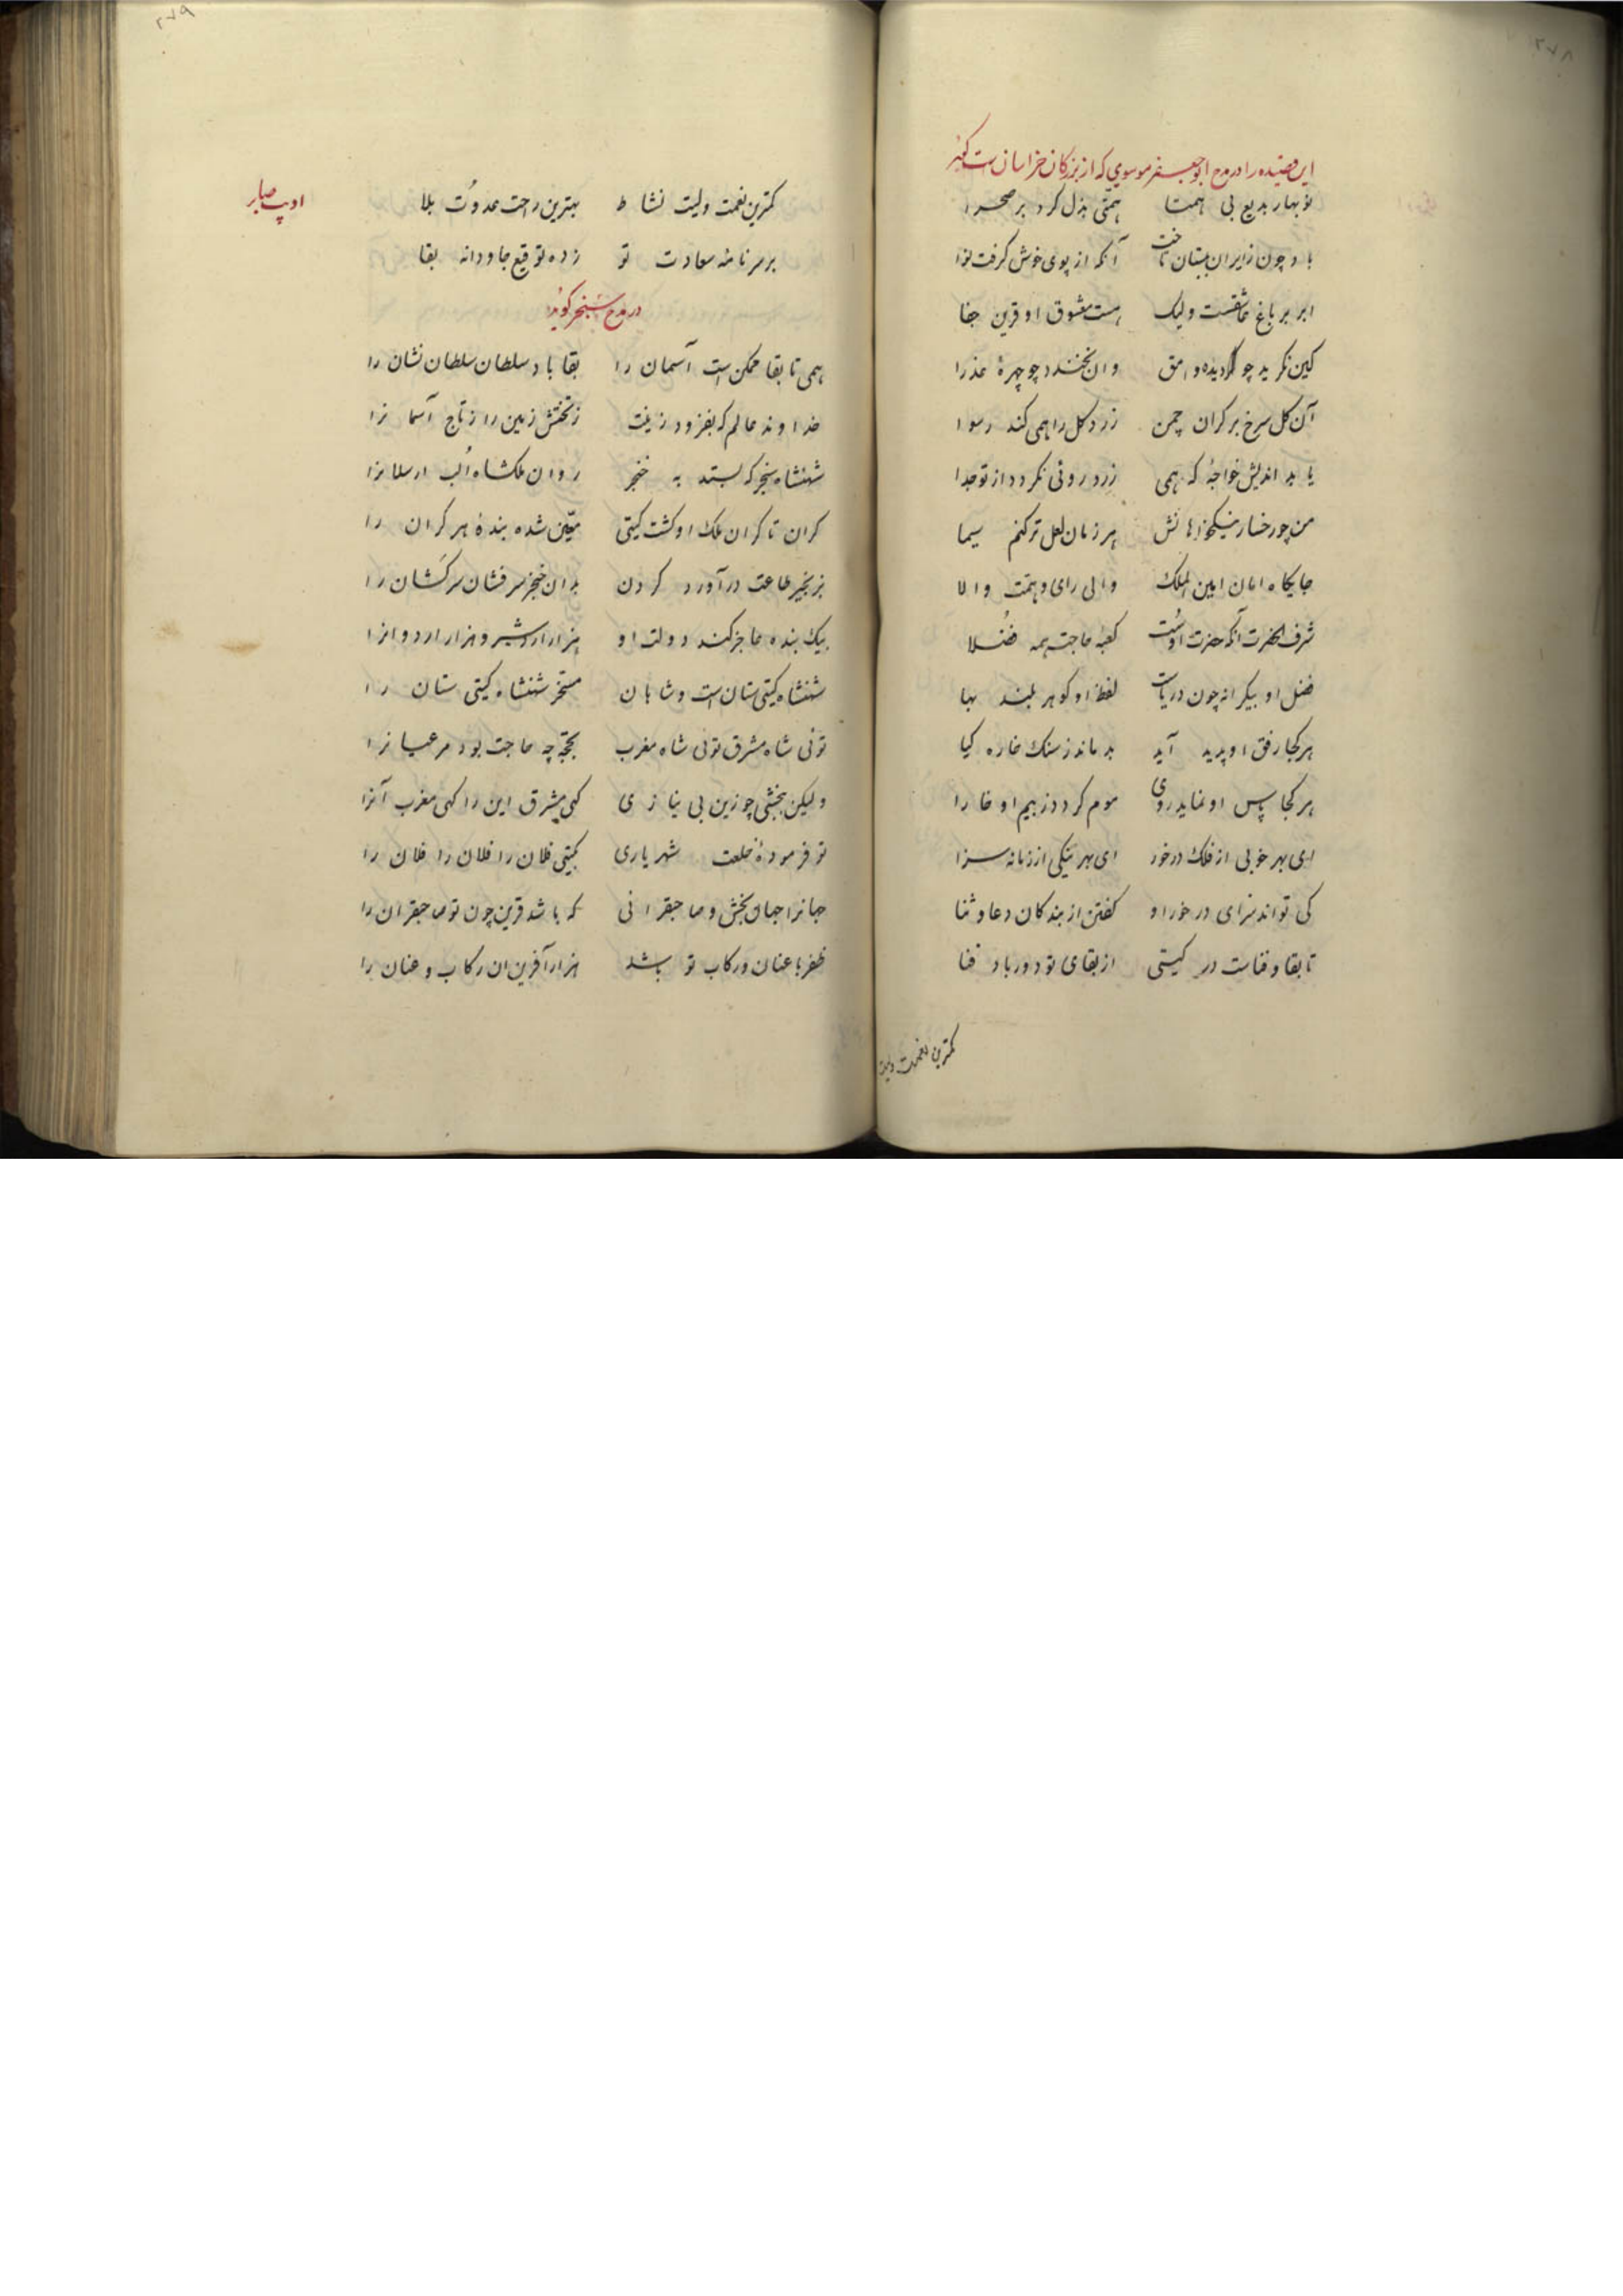 ۲۷۸
این قصیده را در مدح ابوجعفر موسوی که از بزرکان خراسانست کوید
نوبهار بدیع بی همتا همتی بذل کرد بر صحرا
باد چون زایران ببستان تاخت آنکه از بوی خوش کرفت نوا
ابر بر باغ عاشقست ولیک هست معشوق او قرین جفا
کین نکرید چو دیده وامق وان نخندد چو چهرهٔ عذرا
آن کل سرخ بر کران چمن زرد کل را همی کند رسوا
یا بد اندیش خواجهٔ که همی زرد روئی نکردد از تو جدا
من چو رخسار نیکخواهانش هر زمان لعل تر کنم سیما
جایکاه امان امین الملک والی رای و همت والا
شرف الحضرت آنکه حضرت اوست کعبهٔ حاجت همه فضلا
فضل او بیکرانه چون دریاست لفظ او کوهر بلند بها
هر کجا رفق او پدید آید بدماند ز سنک خاره کیا
هر کجا پاس او نماید روی موم کردد ز بیم او خارا
ای بهر خوبی از فلک درخور ای بهر نیکی از زمانه سزا
کی تواند سزای درخور او کفتن از بندکان دعا و ثنا
تا بقا و فناست در کیتی از بقای تو دور باد فنا
کمترین نعمت ولیت
۲۷۹
ادیب صابر
کمترین نعمت ولیت نشاط بهترین راحت عدوت بلا
بر سر نامهٔ سعادت تو زده توقیع جاودانه بقا
در مدح سنجر کوید
همی تا بقا ممکن است آسمان را بقا باد سلطان سلطان نشان را
خداوند عالم که بفزود زینت ز تختش زمین را ز تاج آسما نرا
شهنشاه سنجر که بستد به خنجر روان ملکشاه الب ارسلانرا
کران تا کران ملک او کشت کیتی معین شده بندهٔ هر کران را
بزنجیر طاعت درآورد کردن بدان خنجر سرفشان سرکشان را
بیک بنده عاجز کند دولت او هزار اردشیر و هزار اردوانرا
شهنشاه کیتی ستان است و شاهان مسخر شهنشاه کیتی ستان را
توئی شاه مشرق توئی شاه مغرب بحجة چه حاجت بود مر عیانرا
ولیکن ببخشی چو زین بی نیازی کهی مشرق این را کهی مغرب آنرا
تو فرمودهٔ خلعت شهریاری بکیتی فلان را فلان را فلان را
جهانرا جهان بخش و صاحبقرانی که باشد قرین چون تو صاحبقران را
ظفر با عنان و رکاب تو باشد هزار آفرین ان رکاب و عنان را